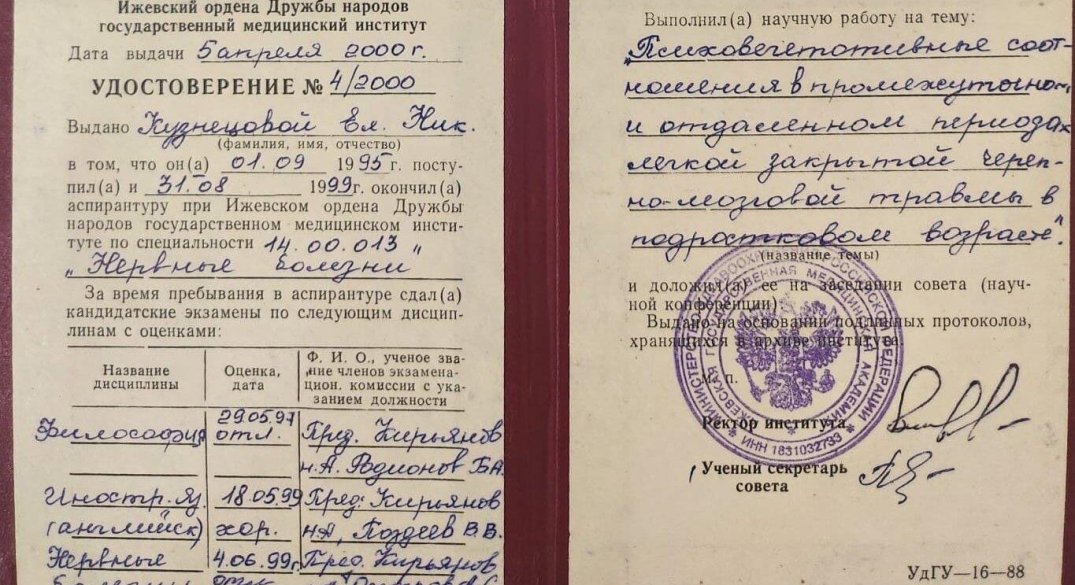 Ижевский ордена Дружбы народов
государственный медицинский институт
Дата выдачи 5 апреля 2000 г.
УДОСТОВЕРЕНИЕ № 4/2000
Выдано Кузнецовой Ел. Ник.
(фамилия, имя, отчество)
в том, что он(а) 01.09 1995 г. посту-
пил(а) и 31.08 1999 г. окончил(а)
аспирантуру при Ижевском ордена Дружбы
народов государственном медицинском инсти-
туте по специальности 14.00.013 „
„Нервные болезни
За время пребывания в аспирантуре сдал(а)
кандидатские экзамены по следующим дисцип-
линам с оценками:
Название дисциплины
Оценка, дата
Ф. И. О., ученое зва-
ние членов экзамена-
цион. комиссии с ука-
занием должности
Философия
29.05.97
отл.
Пред. Кирьянов
н.А. Родионов Б.А.
Иностр. яз.
(английск)
18.05.99
хор.
Пред. Кирьянов
н.А, Поздеев В.В.
Нервные
4.06.99г.
Пред. Кирьянов
Выполнил(а) научную работу на тему:
„Психовегетотивные соот-
ношения в промежуточном
и отдаленном периодах
легкой закрытой череп-
но-мозговой травмы в
подростковом возрасте".
(название темы)
и доложил(а) ее на заседании совета (науч-
ной конференции)
Выдано на основании подлинных протоколов,
хранящихся в архиве института.
М. п.
Ректор института
Ученый секретарь
совета
МИНИСТЕРСТВО ЗДРАВООХРАНЕНИЯ РОССИЙСКОЙ ФЕДЕРАЦИИ
ИЖЕВСКАЯ ГОСУДАРСТВЕННАЯ МЕДИЦИНСКАЯ АКАДЕМИЯ
ИНН 1831032733
УдГУ—16—88